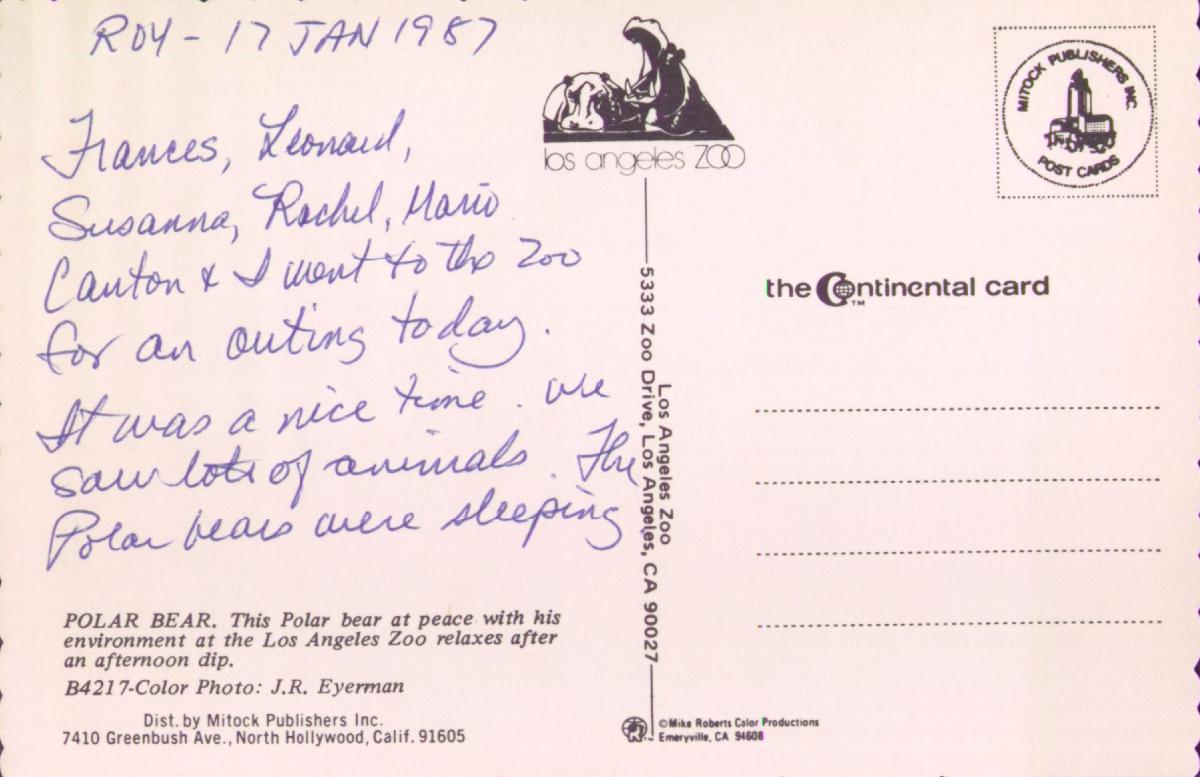 ROY - 17 JAN 1987
Frances, Leonard,
Susanna, Rachel, Mario
Canton & I went to the Zoo
for an outing today.
It was a nice time. We
saw lots of animals. The
Polar bears were sleeping
POLAR BEAR. This Polar bear at peace with his
environment at the Los Angeles Zoo relaxes after
an afternoon dip.
B4217-Color Photo: J.R. Eyerman
Dist. by Mitock Publishers Inc.
7410 Greenbush Ave., North Hollywood, Calif. 91605
los angeles ZOO
Los Angeles Zoo
5333 Zoo Drive, Los Angeles, CA 90027
©Mike Roberts Color Productions
Emeryville, CA 94608
MITOCK PUBLISHERS INC.
POST CARDS
the Continental card
TM